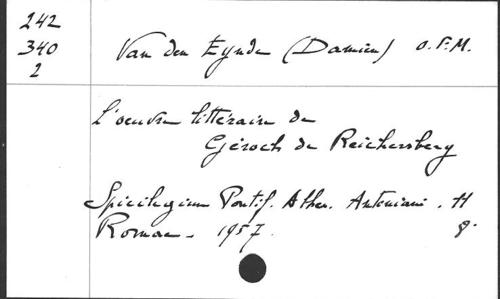 242
340
2
Van den Eynde (Damien) O.F.M.
L'oeuvre littéraire de
Géroch de Reichersberg
Spicilegium Pontif. Athen. Antoniani. 11
Romae - 1957. 8°